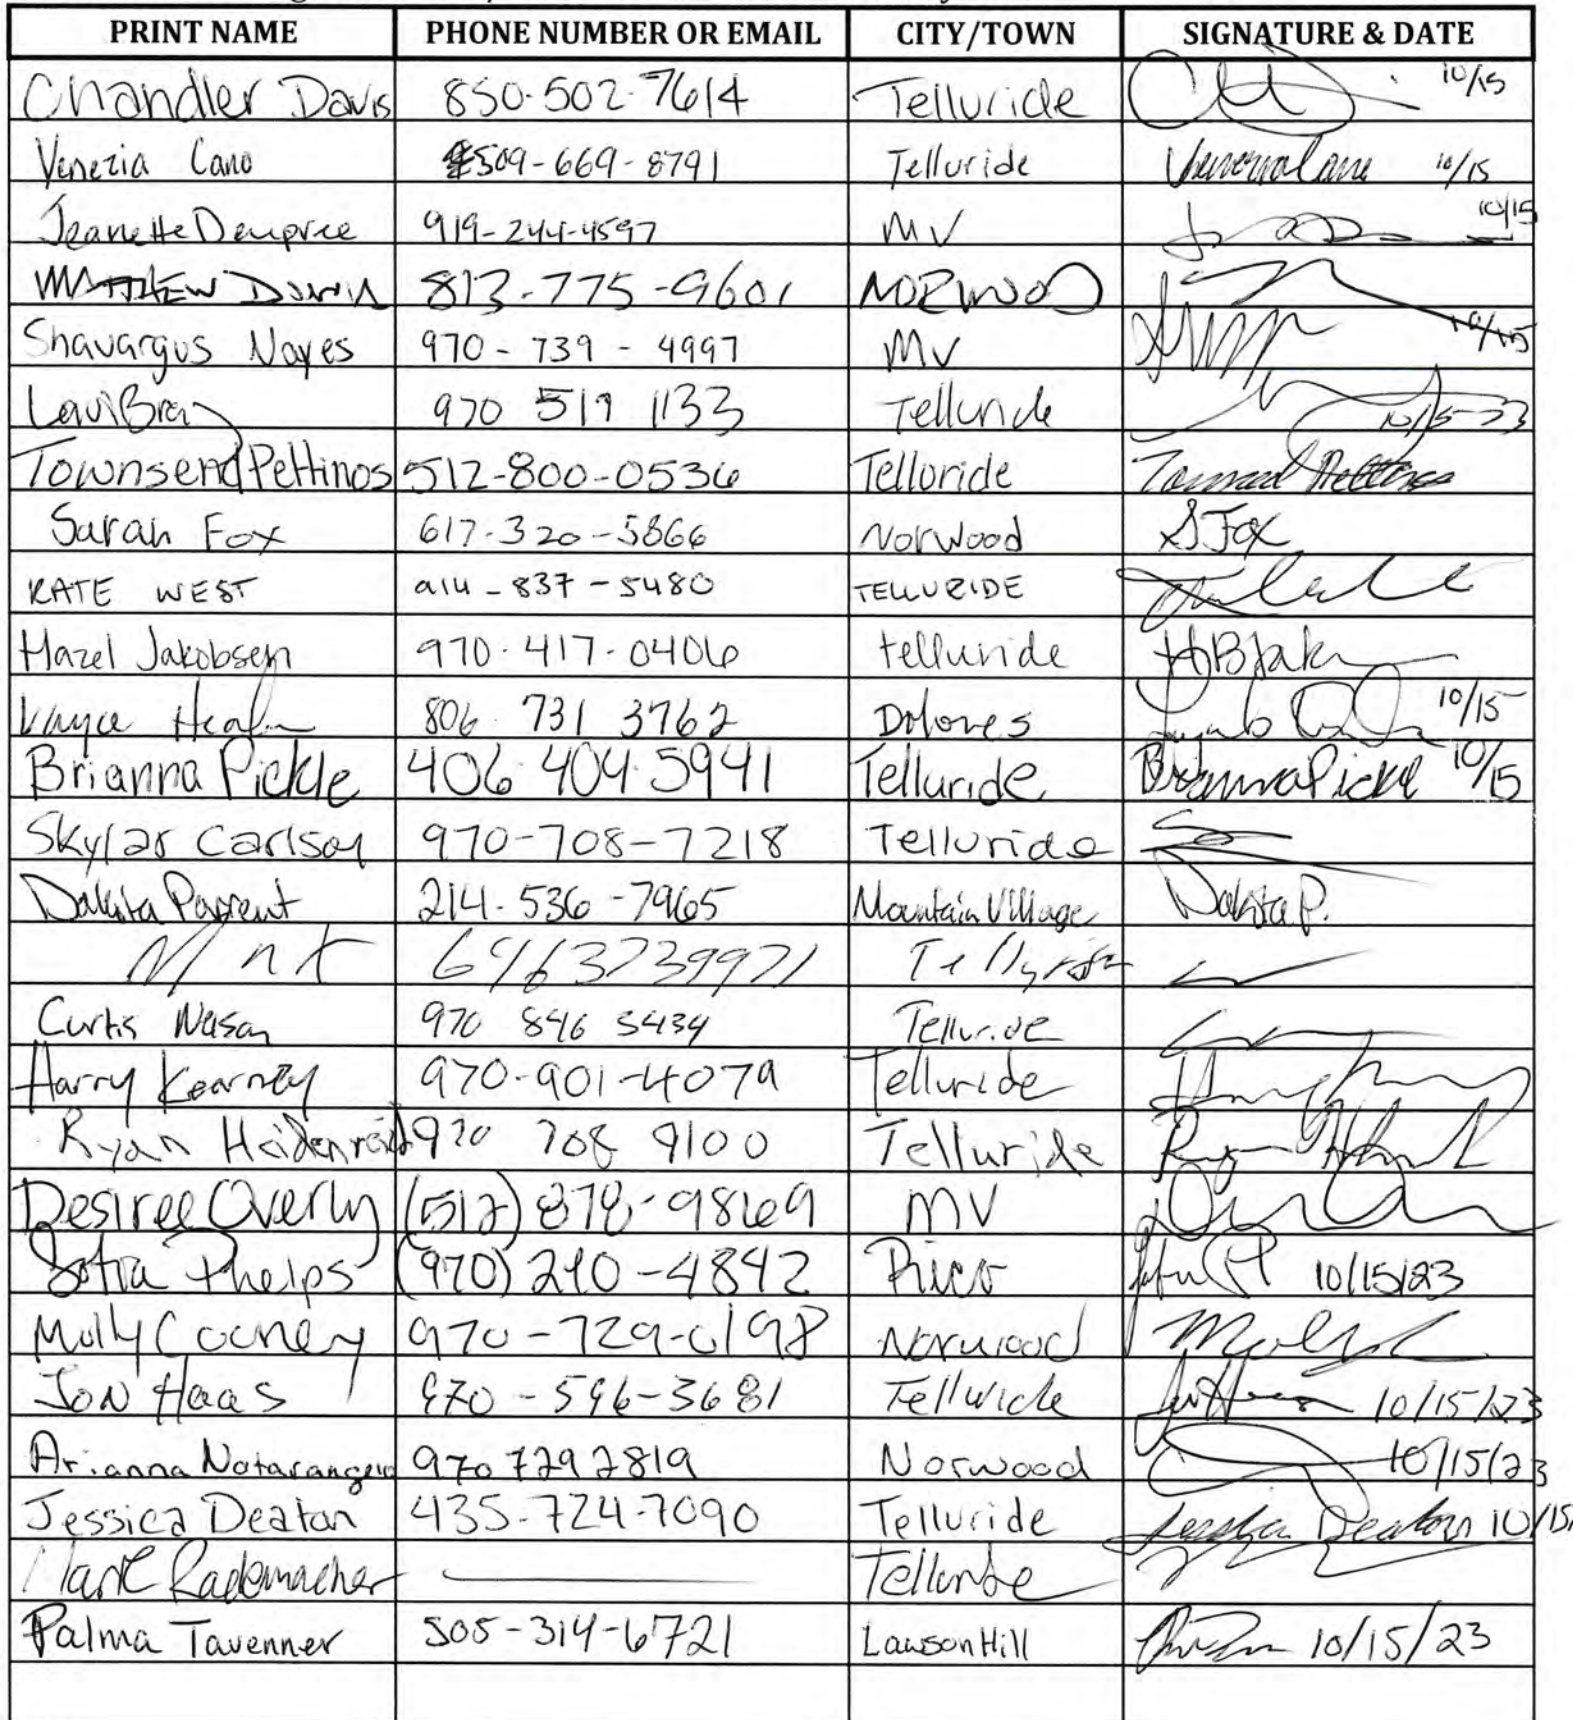 PRINT NAME PHONE NUMBER OR EMAIL CITY/TOWN SIGNATURE & DATE
Chandler Davis 850-502-7614 Telluride 10/15
Venezia Cano 509-669-8791 Telluride 10/15
Jeanette Dempree 919-244-4597 MV 10/15
MATTHEW 813-775-9601 NORWOOD
Shavargus Noyes 970-739-4997 MV 10/15
970 519 1133 Telluride 10/15-23
Townsend Pettinos 512-800-0536 Telluride Townsend Pettinos
Sarah Fox 617-320-5866 Norwood S Fox
KATE WEST 914-837-5480 TELLURIDE
Hazel Jakobsen 970-417-0406 telluride HBJak
806 731 3762 Dolores 10/15
Brianna Pickle 406 404 5941 Telluride Brianna Pickle 10/15
Skylar Carlson 970-708-7218 Telluride
Dakota Parrent 214-536-7965 Mountain Village Dakota P.
Telluride
Curtis Nason 970 846 3434 Telluride
Harry Kearney 970-901-4079 Telluride
Ryan Heidenreich 970 708 9100 Telluride
Desiree Overly (512) 878-9869 MV
Sofia Phelps (970) 210-4842 Rico 10/15/23
Molly Cooney 970-729-0198 Norwood
Jon Haas 970-596-3681 Telluride Jon Haas 10/15/23
Arianna Notarangelo 970 729 2819 Norwood 10/15/23
Jessica Deaton 435-724-7090 Telluride Jessica Deaton 10/15/
Mark Rademacher Telluride
Palma Tavenner 505-314-6721 Lawson Hill 10/15/23